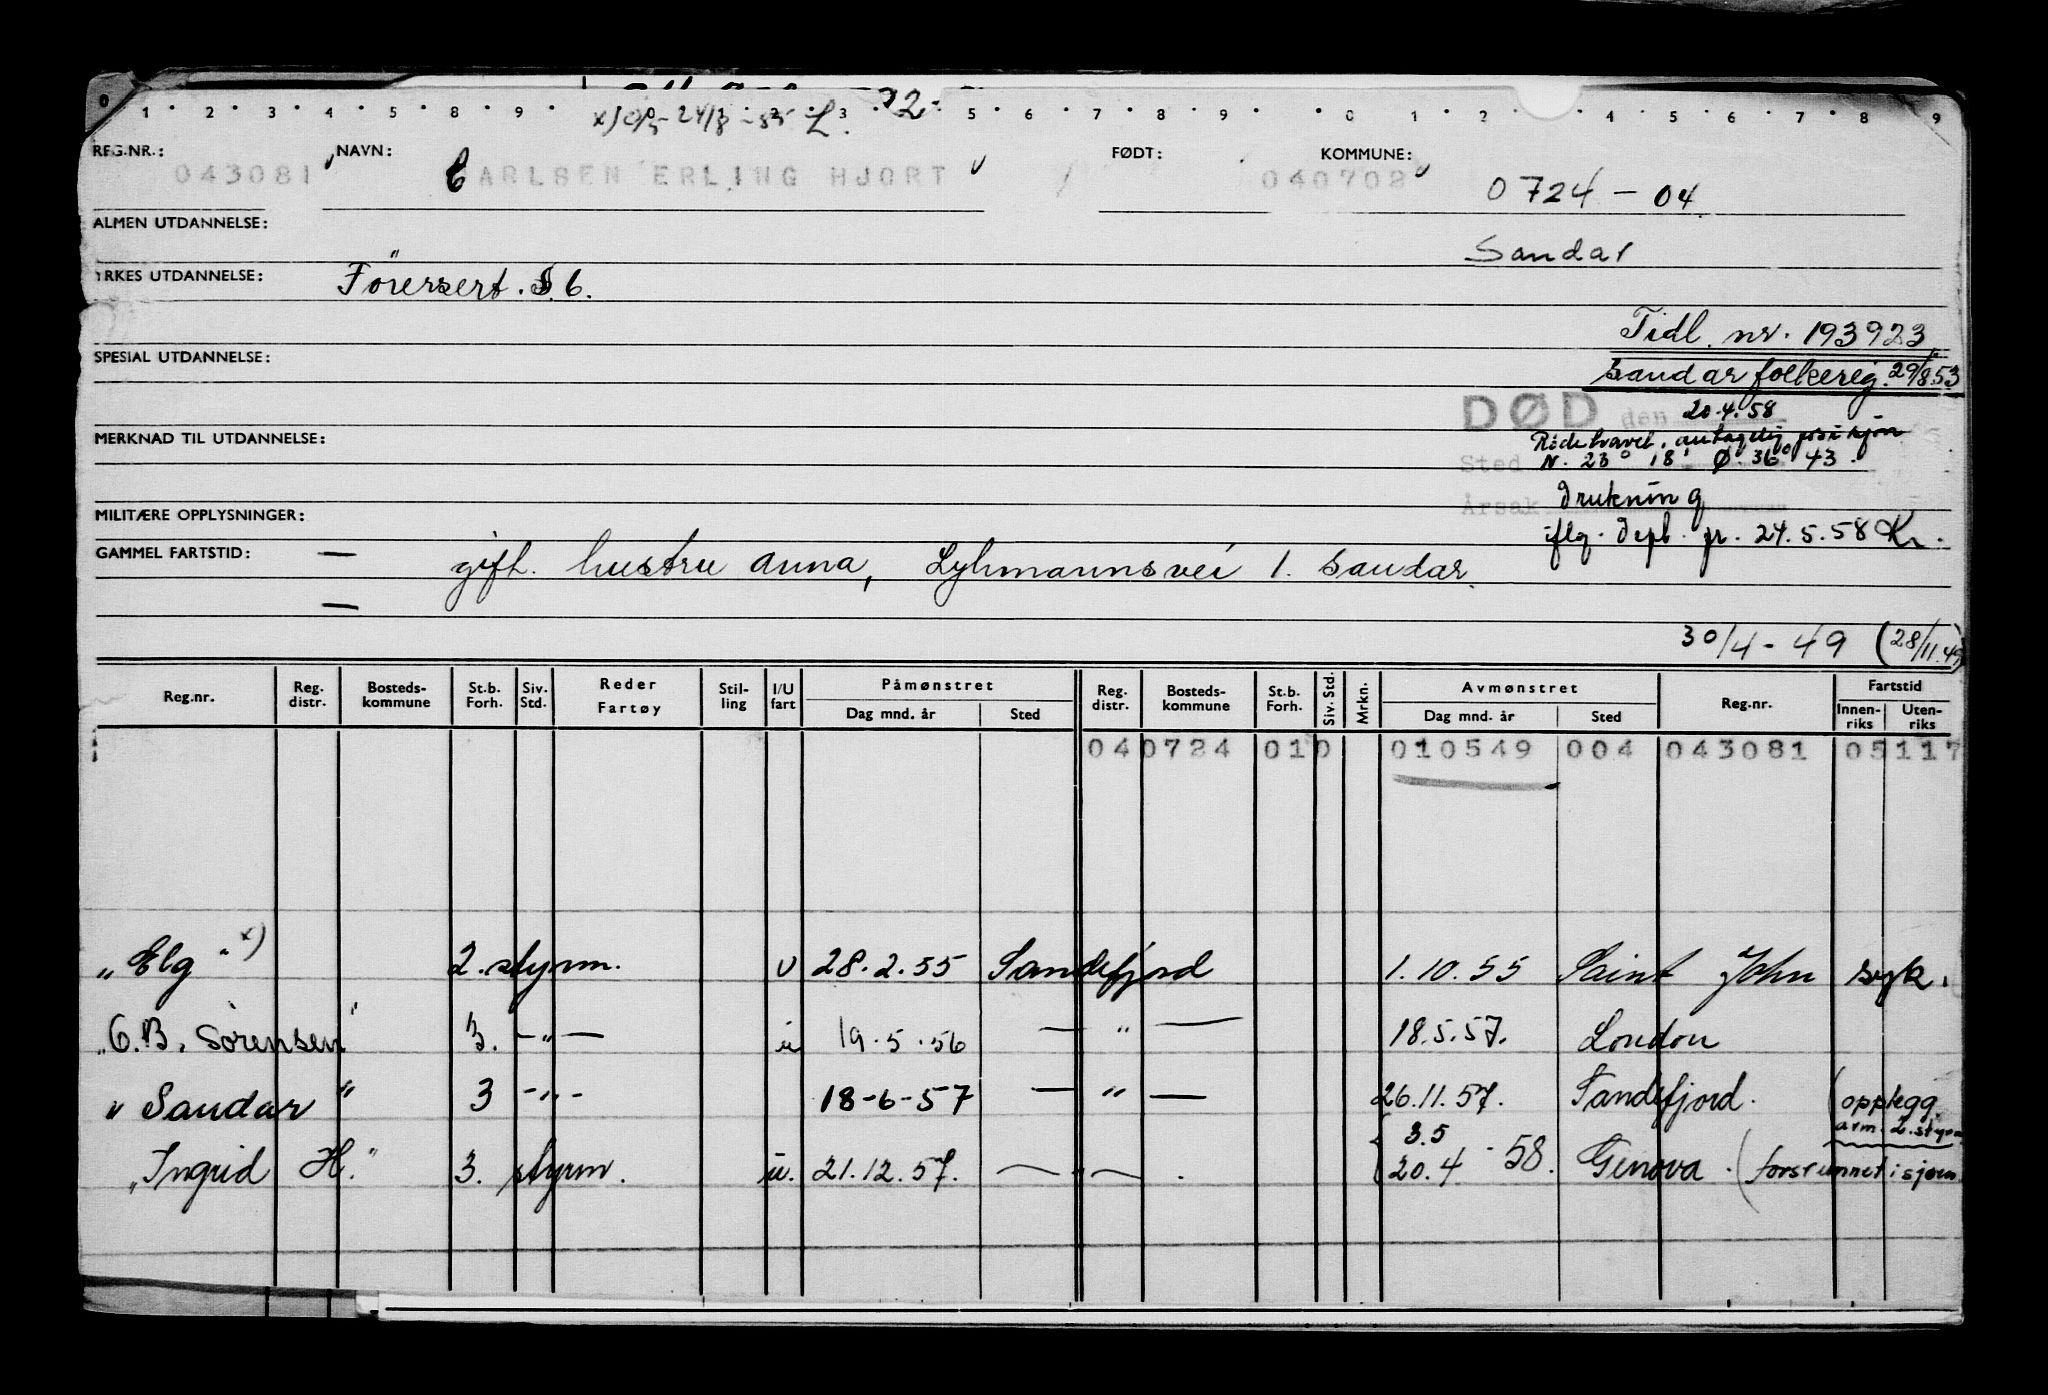 0 1 2 3 4 5 6 7 8 9 0 1 2 3 4 5 6 7 8 9 0 1 2 3 4 5 6 7 8 9
24/8 - 55 L.
REG.NR.: NAVN: FØDT: KOMMUNE:
043081 CARLSEN ERLING HJORT 040702 0724 - 04
ALMEN UTDANNELSE:
Sandar
YRKES UTDANNELSE: Förersert. S 6.
Tidl. nr. 193923
SPESIAL UTDANNELSE:
Sandar folkereg. 29/8.53
DØD den 20.4.58
MERKNAD TIL UTDANNELSE: Rödehavet, antagelig posisjon
Sted N. 23° 18' Ø. 36° 43
Årsak drukning
MILITÆRE OPPLYSNINGER:
iflg. dept. pr. 24.5.58 Kr.
GAMMEL FARTSTID: —
gift. hustru Anna, Lyhmannsvei 1. Sandar.
—
30/4 - 49 (28/11.49)
Reg.nr. Reg. distr. Bosteds-kommune St.b. Forh. Siv. Std. Reder Fartøy Stil-ling I/U fart Påmønstret Dag mnd. år Sted Reg. distr. Bosteds-kommune St.b. Forh. Siv. Std. Mrkn. Avmønstret Dag mnd. år Sted Reg.nr. Fartstid Innen-riks Uten-riks
040724 010 010549 004 043081 05117
„Elg" x) 2. styrm. u 28.2.55 Sandefjord 1.10.55 Saint John syk.
„C.B. Sörensen" 3. —"— u 19.5.56 —"— 18.5.57. London
„Sandar" 3 -"- 18-6-57 —"— 26.11.57. Sandefjord. (opplegg.
avm. 2. styrm
3.5
„Ingrid H." 3. styrm. u. 21.12.57. —"— 20.4 - 58. Genova. (forsvunnet i sjøen